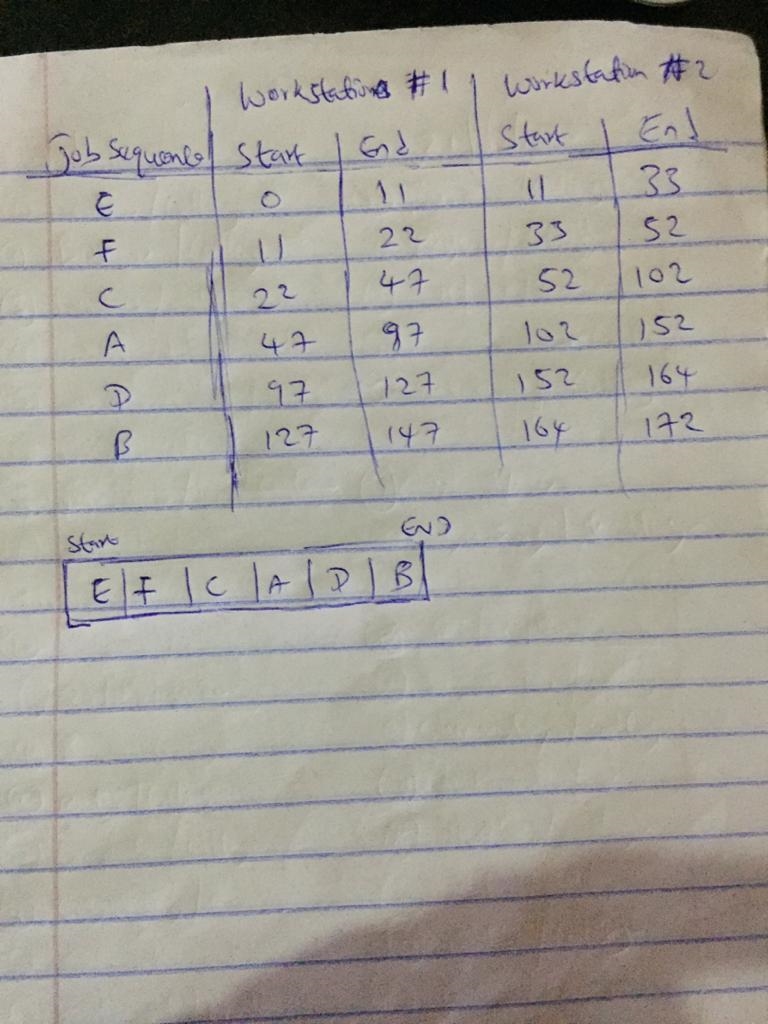 Workstation #1 Workstation #2
Job Sequence Start End Start End
E 0 11 11 33
F 11 22 33 52
C 22 47 52 102
A 47 97 102 152
D 97 127 152 164
B 127 147 164 172
Start END
E F C A D B